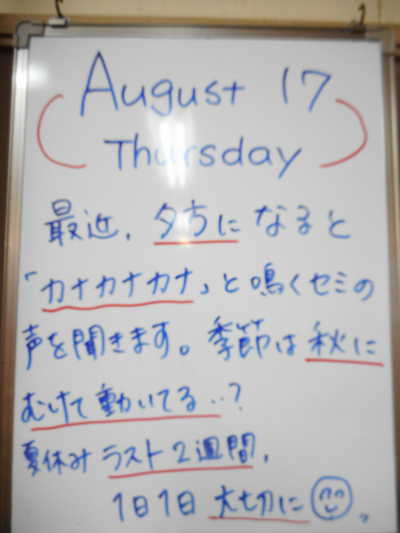 August 17
Thursday
最近、夕方になると
「カナカナカナ」と鳴くセミの
声を聞きます。季節は秋に
むけて動いてる‥?
夏休みラスト2週間、
1日1日大切に。